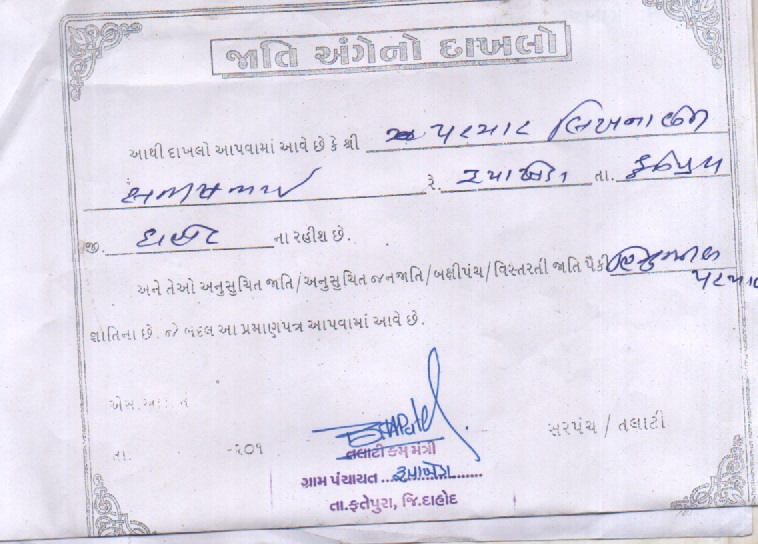 જાતિ અંગેનો દાખલો
આથી દાખલો આપવામાં આવે છે કે શ્રી પરમાર
રે. તા. ફતેપુરા
જી. દાહોદ ના રહીશ છે.
અને તેઓ અનુસુચિત જાતિ/અનુસુચિત જનજાતિ/બક્ષીપંચ/વિસ્તરતી જાતિ પૈકી
પરમાર
જ્ઞાતિના છે. જે બદલ આ પ્રમાણપત્ર આપવામાં આવે છે.
સરપંચ / તલાટી
તા. -૨૦૧
તલાટી કમ મંત્રી
ગ્રામ પંચાયત
તા.ફતેપુરા, જિ.દાહોદ